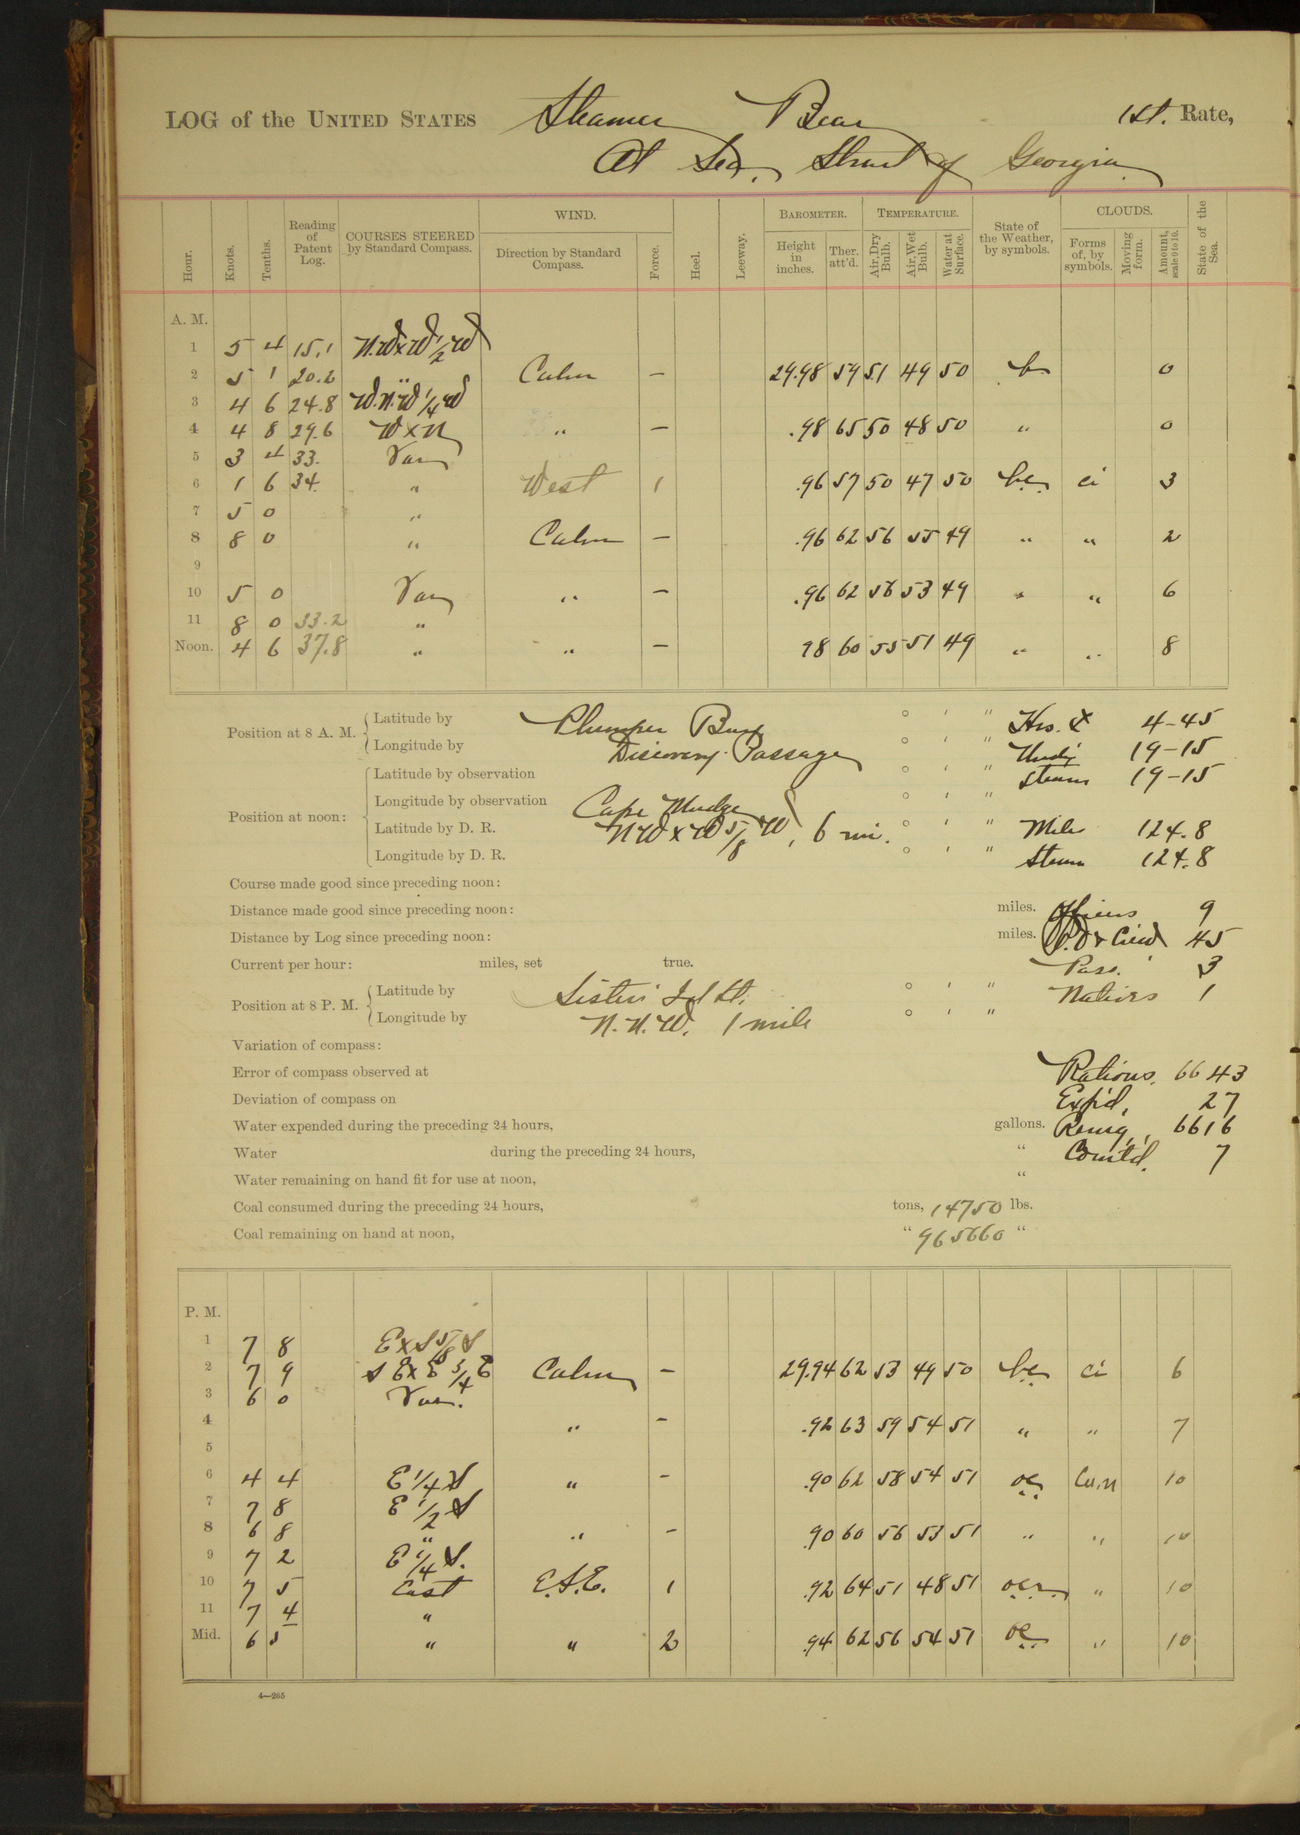 LOG of the UNITED STATES Steamer Bear 1st. Rate,
At Sea, Strait of Georgia
Hour. Knots. Tenths. Reading of Patent Log. COURSES STEERED by Standard Compass. WIND. Direction by Standard Compass. Force. Heel. Leeway. BAROMETER. Height in inches. Ther. att'd. TEMPERATURE. Air, Dry Bulb. Air, Wet Bulb. Water at Surface. State of the Weather, by symbols. CLOUDS. Forms of, by symbols. Moving form. Amount, scale 0 to 10. State of the Sea.
A. M.
1 5 4 15.1 N.WxW 1/2 W
2 5 1 20.2 " Calm — 29.98 59 51 49 50 b 0
3 4 6 24.8 W.N.W 1/4 W
4 4 8 29.6 W x N " — .98 65 50 48 50 " 0
5 3 4 33. Var
6 1 6 34. " West 1 .96 57 50 47 50 bc ci 3
7 5 0 "
8 8 0 " Calm — .96 62 56 55 49 " " 2
9
10 5 0 Var " — .96 62 56 53 49 " " 6
11 8 0 33.2 "
Noon. 4 6 37.8 " " — 98 60 55 51 49 " " 8
Position at 8 A. M. Latitude by Plumper Bay ° ' " Hrs. & 4-45
Longitude by Discovery Passage ° ' " Undy 19-15
Position at noon: Latitude by observation ° ' " Steam 19-15
Longitude by observation Cape Mudge ° ' "
Latitude by D. R. NW x W 5/8 W, 6 mi. ° ' " Miles 124.8
Longitude by D. R. ° ' " Steam 124.8
Course made good since preceding noon:
Distance made good since preceding noon: miles. Officers 9
Distance by Log since preceding noon: miles. P.O & Crew 45
Current per hour: miles, set true. Pass. 3
Position at 8 P. M. Latitude by Sisters Isl Lt. ° ' " Natives 1
Longitude by N.N.W. 1 mile ° ' "
Variation of compass:
Error of compass observed at Rations. 6643
Deviation of compass on Exp'd, 27
Water expended during the preceding 24 hours, gallons. Remg, 6616
Water during the preceding 24 hours, " Comtd. 7
Water remaining on hand fit for use at noon, "
Coal consumed during the preceding 24 hours, tons, 14750 lbs.
Coal remaining on hand at noon, " 965660 "
P. M.
1 7 8 E x S 5/8 S
2 7 9 S E x E 3/4 E Calm — 29.94 62 53 49 50 bc ci 6
3 6 0 Var.
4 " — .92 63 59 54 51 " " 7
5
6 4 4 E 1/4 S " — .90 62 58 54 51 oc Cu.n 10
7 7 8 E 1/2 S
8 6 8 " " — .90 60 56 53 51 " " 10
9 7 2 E 1/4 S.
10 7 5 East E.S.E. 1 .92 64 51 48 51 ocr. " 10
11 7 4 "
Mid. 6 5 " " 2 .94 62 56 54 51 oc " 10
4—265